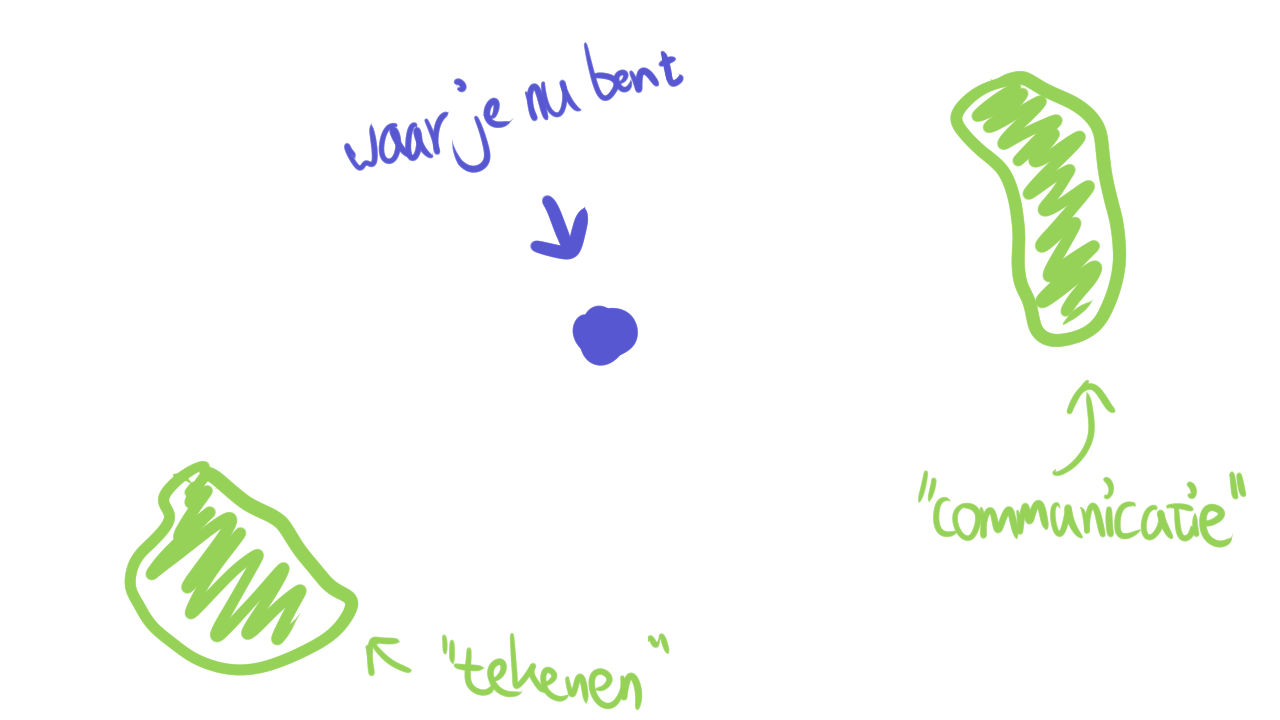 waar je nu bent
"communicatie"
"tekenen"